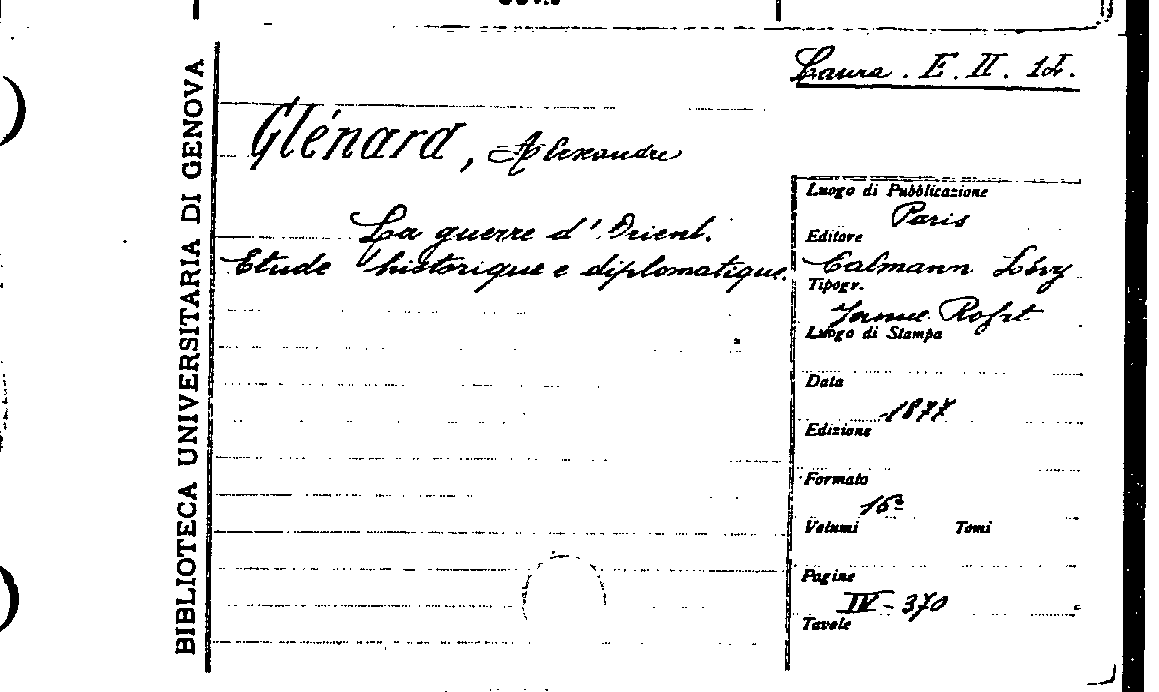 Laura. E. II. 12.
BIBLIOTECA UNIVERSITARIA DI GENOVA
Glénard, Alexandre
La guerre d'Orient.
Etude historique e diplomatique.
Luogo di Pubblicazione
Paris
Editore
Calmann Lévy
Tipogr.
Luogo di Stampa
Data
1877
Edizione
Formato
16º
Volumi Tomi
Pagine
IV-370
Tavole